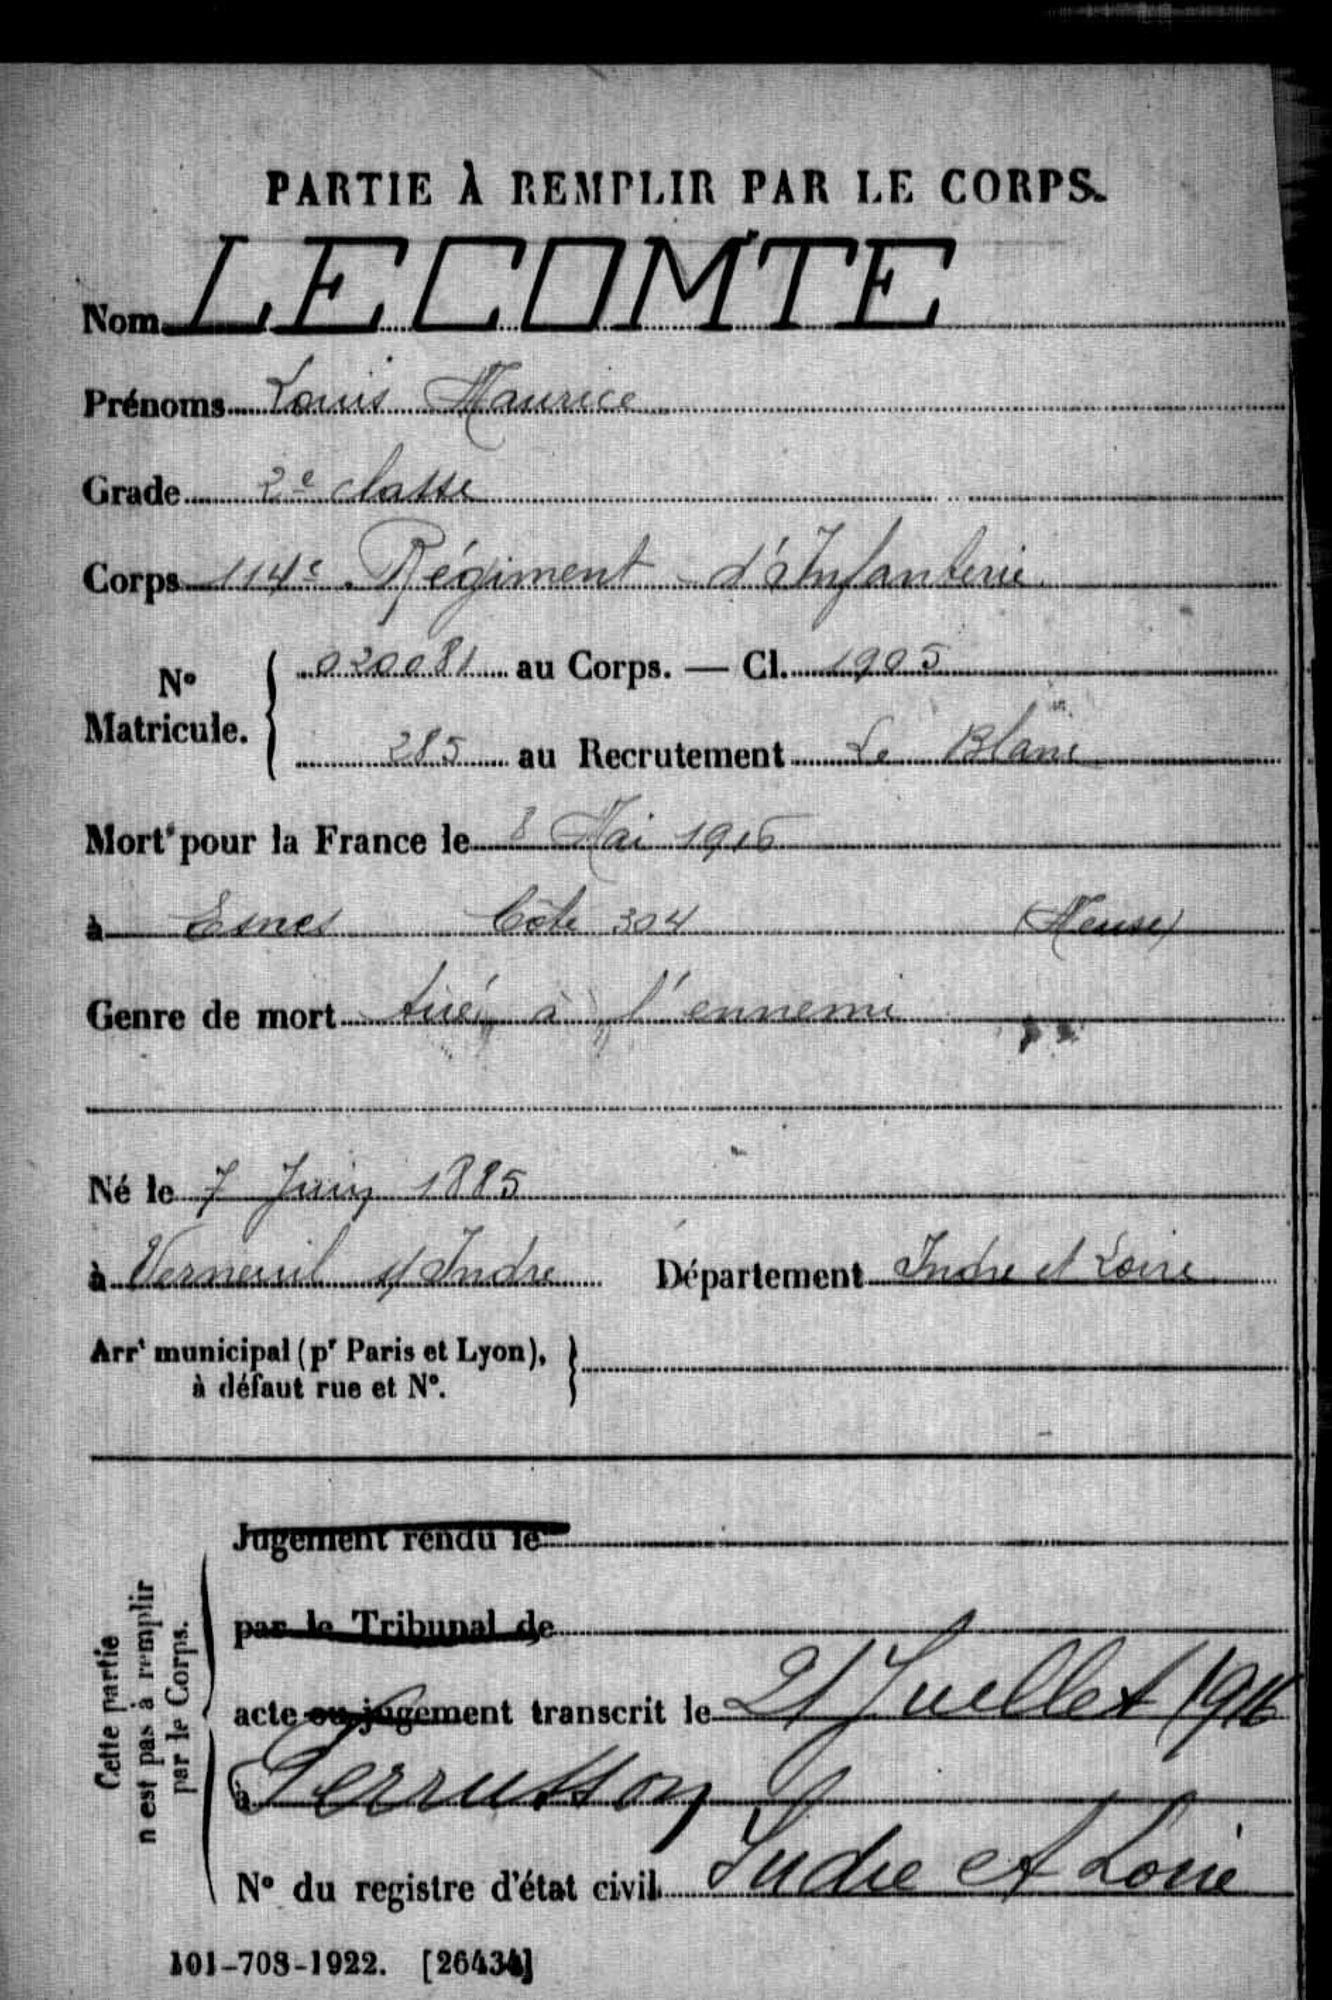 PARTIE À REMPLIR PAR LE CORPS.
Nom LECOMTE
Prénoms Louis Maurice
Grade 2e classe
Corps 114e Régiment d'Infanterie
No Matricule. { 020081 au Corps. — Cl. 1905
285 au Recrutement Le Blanc
Mort pour la France le 8 Mai 1916
à Esnes Côte 304 (Meuse)
Genre de mort tué à l'ennemi
Né le 7 Juin 1885
à Verneuil s/ Indre Département Indre et Loire
Arrt municipal (pr Paris et Lyon), }
à défaut rue et No.
Cette partie
n'est pas à remplir
par le Corps.
Jugement rendu le
par le Tribunal de
acte ou jugement transcrit le 21 Juillet 1916
à Perrusson
No du registre d'état civil Indre et Loire
101-708-1922. [26434]